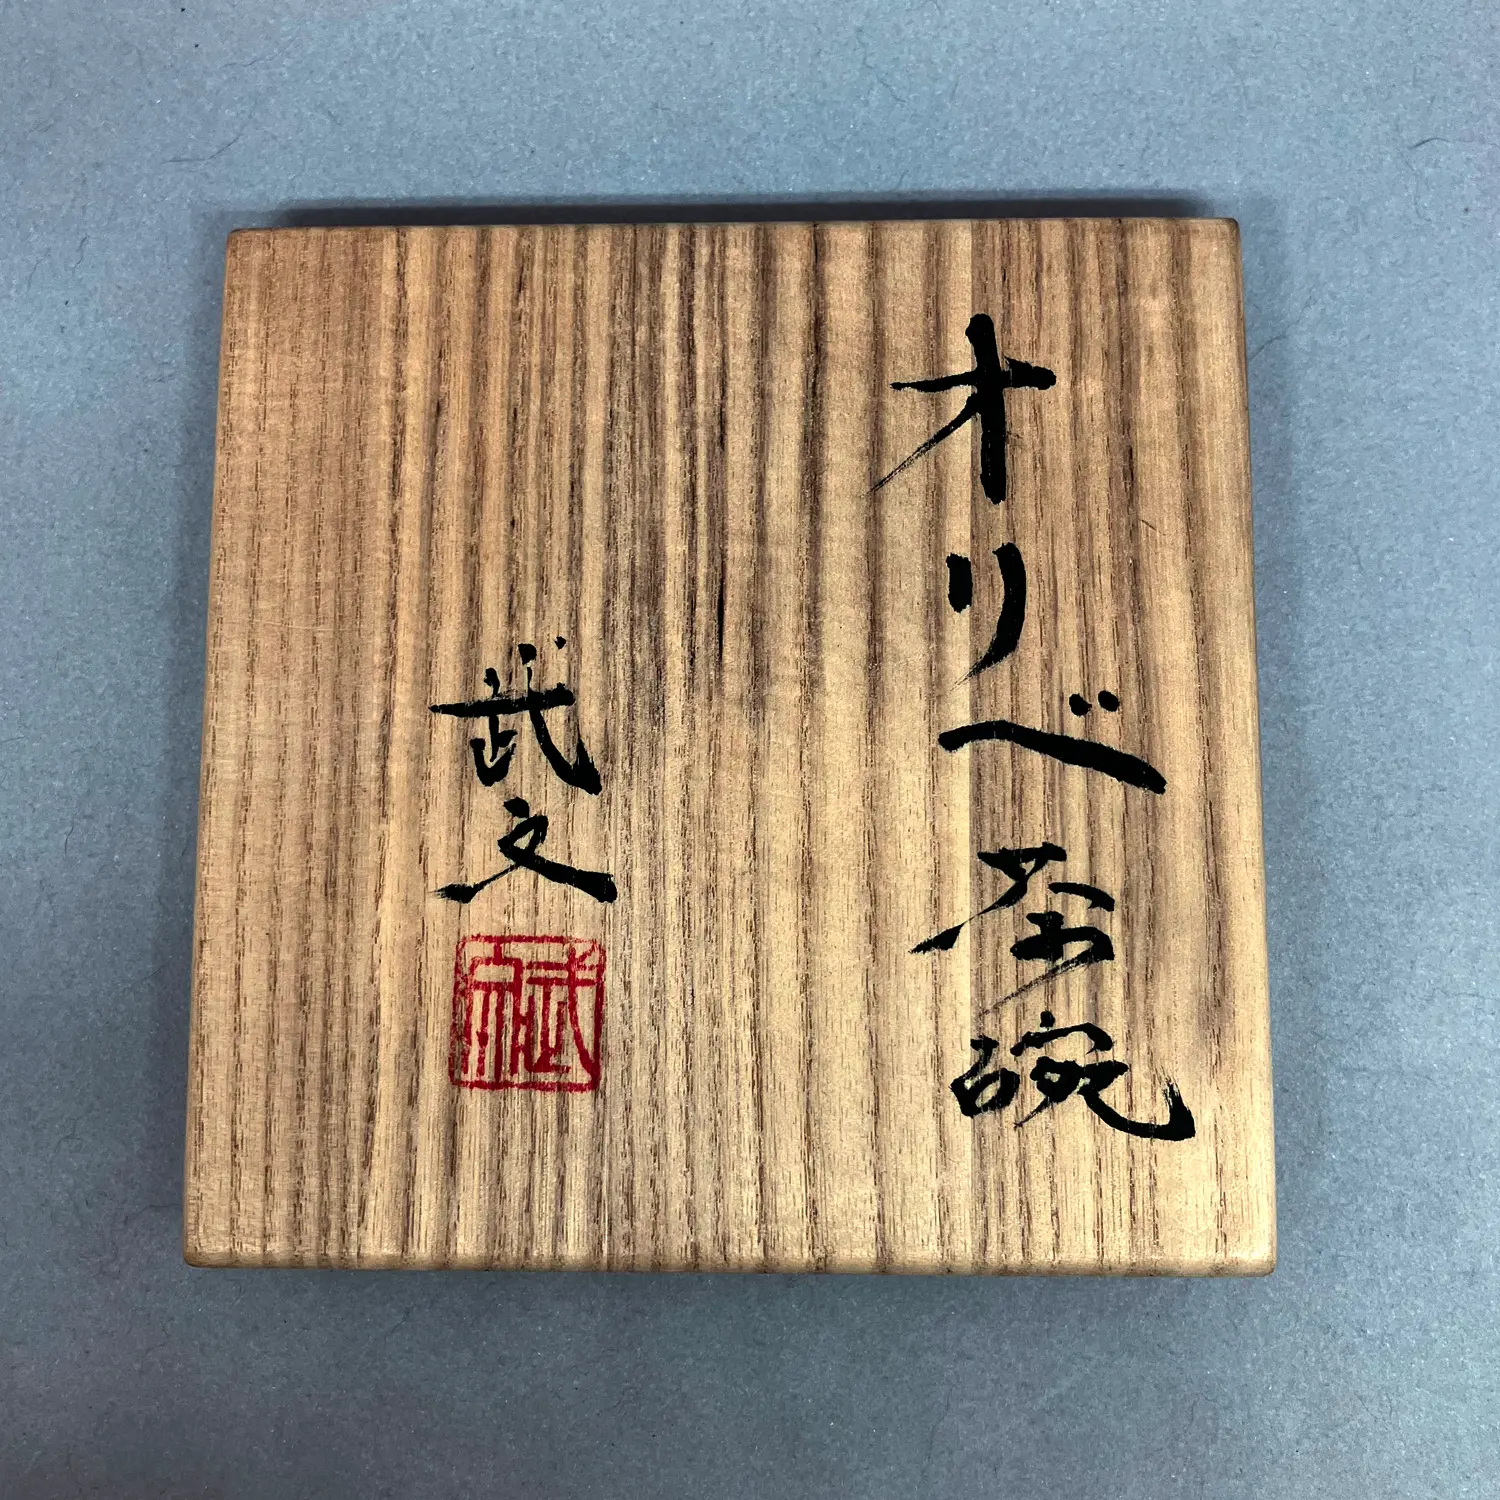 オリベ茶碗
武之